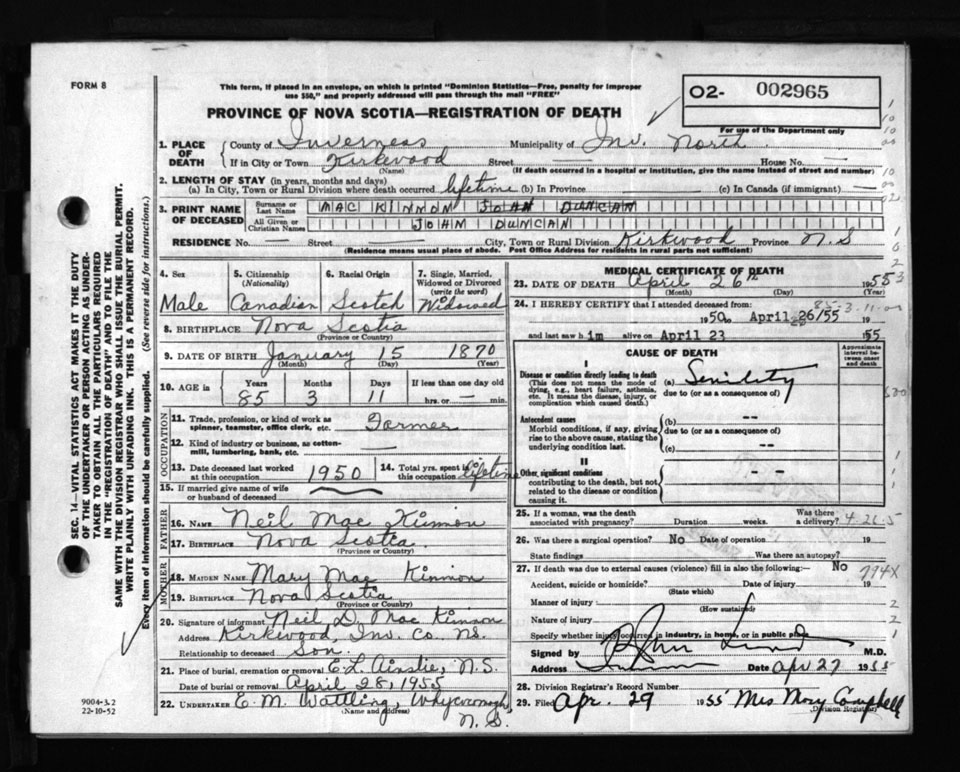 FORM 8
This form, if placed in an envelope, on which is printed "Dominion Statistics—Free, penalty for improper
use $50," and properly addressed will pass through the mail "FREE"
PROVINCE OF NOVA SCOTIA—REGISTRATION OF DEATH
O2- 002965
For use of the Department only
1. PLACE OF DEATH
County of Inverness Municipality of Inv. North
If in City or Town Kirkwood Street — House No. —
(Name) (If death occurred in a hospital or institution, give the name instead of street and number)
2. LENGTH OF STAY (in years, months and days)
(a) In City, Town or Rural Division where death occurred lifetime (b) In Province (c) In Canada (if immigrant) —
3. PRINT NAME OF DECEASED
Surname or Last Name MAC KINNON JOHN DUNCAN
All Given or Christian Names JOHN DUNCAN
RESIDENCE No. — Street — City, Town or Rural Division Kirkwood Province N.S
(Residence means usual place of abode. Post Office Address for residents in rural parts not sufficient)
4. Sex Male
5. Citizenship (Nationality) Canadian
6. Racial Origin Scotch
7. Single, Married, Widowed or Divorced (write the word) Widowed
8. BIRTHPLACE Nova Scotia
(Province or Country)
9. DATE OF BIRTH January 15 1870
(Month) (Day) (Year)
10. AGE in Years Months Days If less than one day old
85 3 11 hrs. or — min.
OCCUPATION
11. Trade, profession, or kind of work as spinner, teamster, office clerk, etc. Farmer
12. Kind of industry or business, as cotton-mill, lumbering, bank, etc.
13. Date deceased last worked at this occupation 1950
14. Total yrs. spent in this occupation lifetime
15. If married give name of wife or husband of deceased
FATHER
16. NAME Neil Mac Kinnon
17. BIRTHPLACE Nova Scotia
(Province or Country)
MOTHER
18. MAIDEN NAME Mary Mac Kinnon
19. BIRTHPLACE Nova Scotia
(Province or Country)
20. Signature of informant Neil D. Mac Kinnon
Address Kirkwood, Inv. Co. NS.
Relationship to deceased Son.
21. Place of burial, cremation or removal E.L. Ainslie, N.S.
Date of burial or removal April 28, 1955
22. UNDERTAKER E. M. Wattling, Whycocomagh
(Name and Address) N.S.
MEDICAL CERTIFICATE OF DEATH
23. DATE OF DEATH April 26th 1955
(Month) (Day) (Year)
24. I HEREBY CERTIFY that I attended deceased from:
1950 to April 26/55 19
and last saw him alive on April 23 1955
CAUSE OF DEATH
Approximate interval between onset and death
I
Disease or condition directly leading to death (a) Senility
(This does not mean the mode of dying, e.g., heart failure, asthenia, etc. It means the disease, injury, or complication which caused death.)
due to (or as a consequence of)
Antecedent causes (b) --
Morbid conditions, if any, giving rise to the above cause, stating the underlying condition last.
due to (or as a consequence of)
(c) --
II
Other significant conditions contributing to the death, but not related to the disease or condition causing it. -- --
25. If a woman, was the death associated with pregnancy? Duration weeks. Was there a delivery?
26. Was there a surgical operation? No Date of operation 19
State findings Was there an autopsy?
27. If death was due to external causes (violence) fill in also the following:— No 794X
Accident, suicide or homicide? Date of injury 19
(State which)
Manner of injury
(How sustained)
Nature of injury
Specify whether injury occurred in industry, in home, or in public place
Signed by M.D.
Address Date apr 27 1955
28. Division Registrar's Record Number
29. Filed Apr. 29 1955 Mrs Mary Campbell
Division Registrar
SEC. 14—VITAL STATISTICS ACT MAKES IT THE DUTY
OF THE UNDERTAKER OR PERSON ACTING AS UNDER-
TAKER TO OBTAIN ALL THE PARTICULARS REQUIRED
IN THE "REGISTRATION OF DEATH" AND TO FILE THE
SAME WITH THE DIVISION REGISTRAR WHO SHALL ISSUE THE BURIAL PERMIT.
WRITE PLAINLY WITH UNFADING INK. THIS IS A PERMANENT RECORD.
Every item of information should be carefully supplied. (See reverse side for instructions.)
9004-3.2
22-10-52